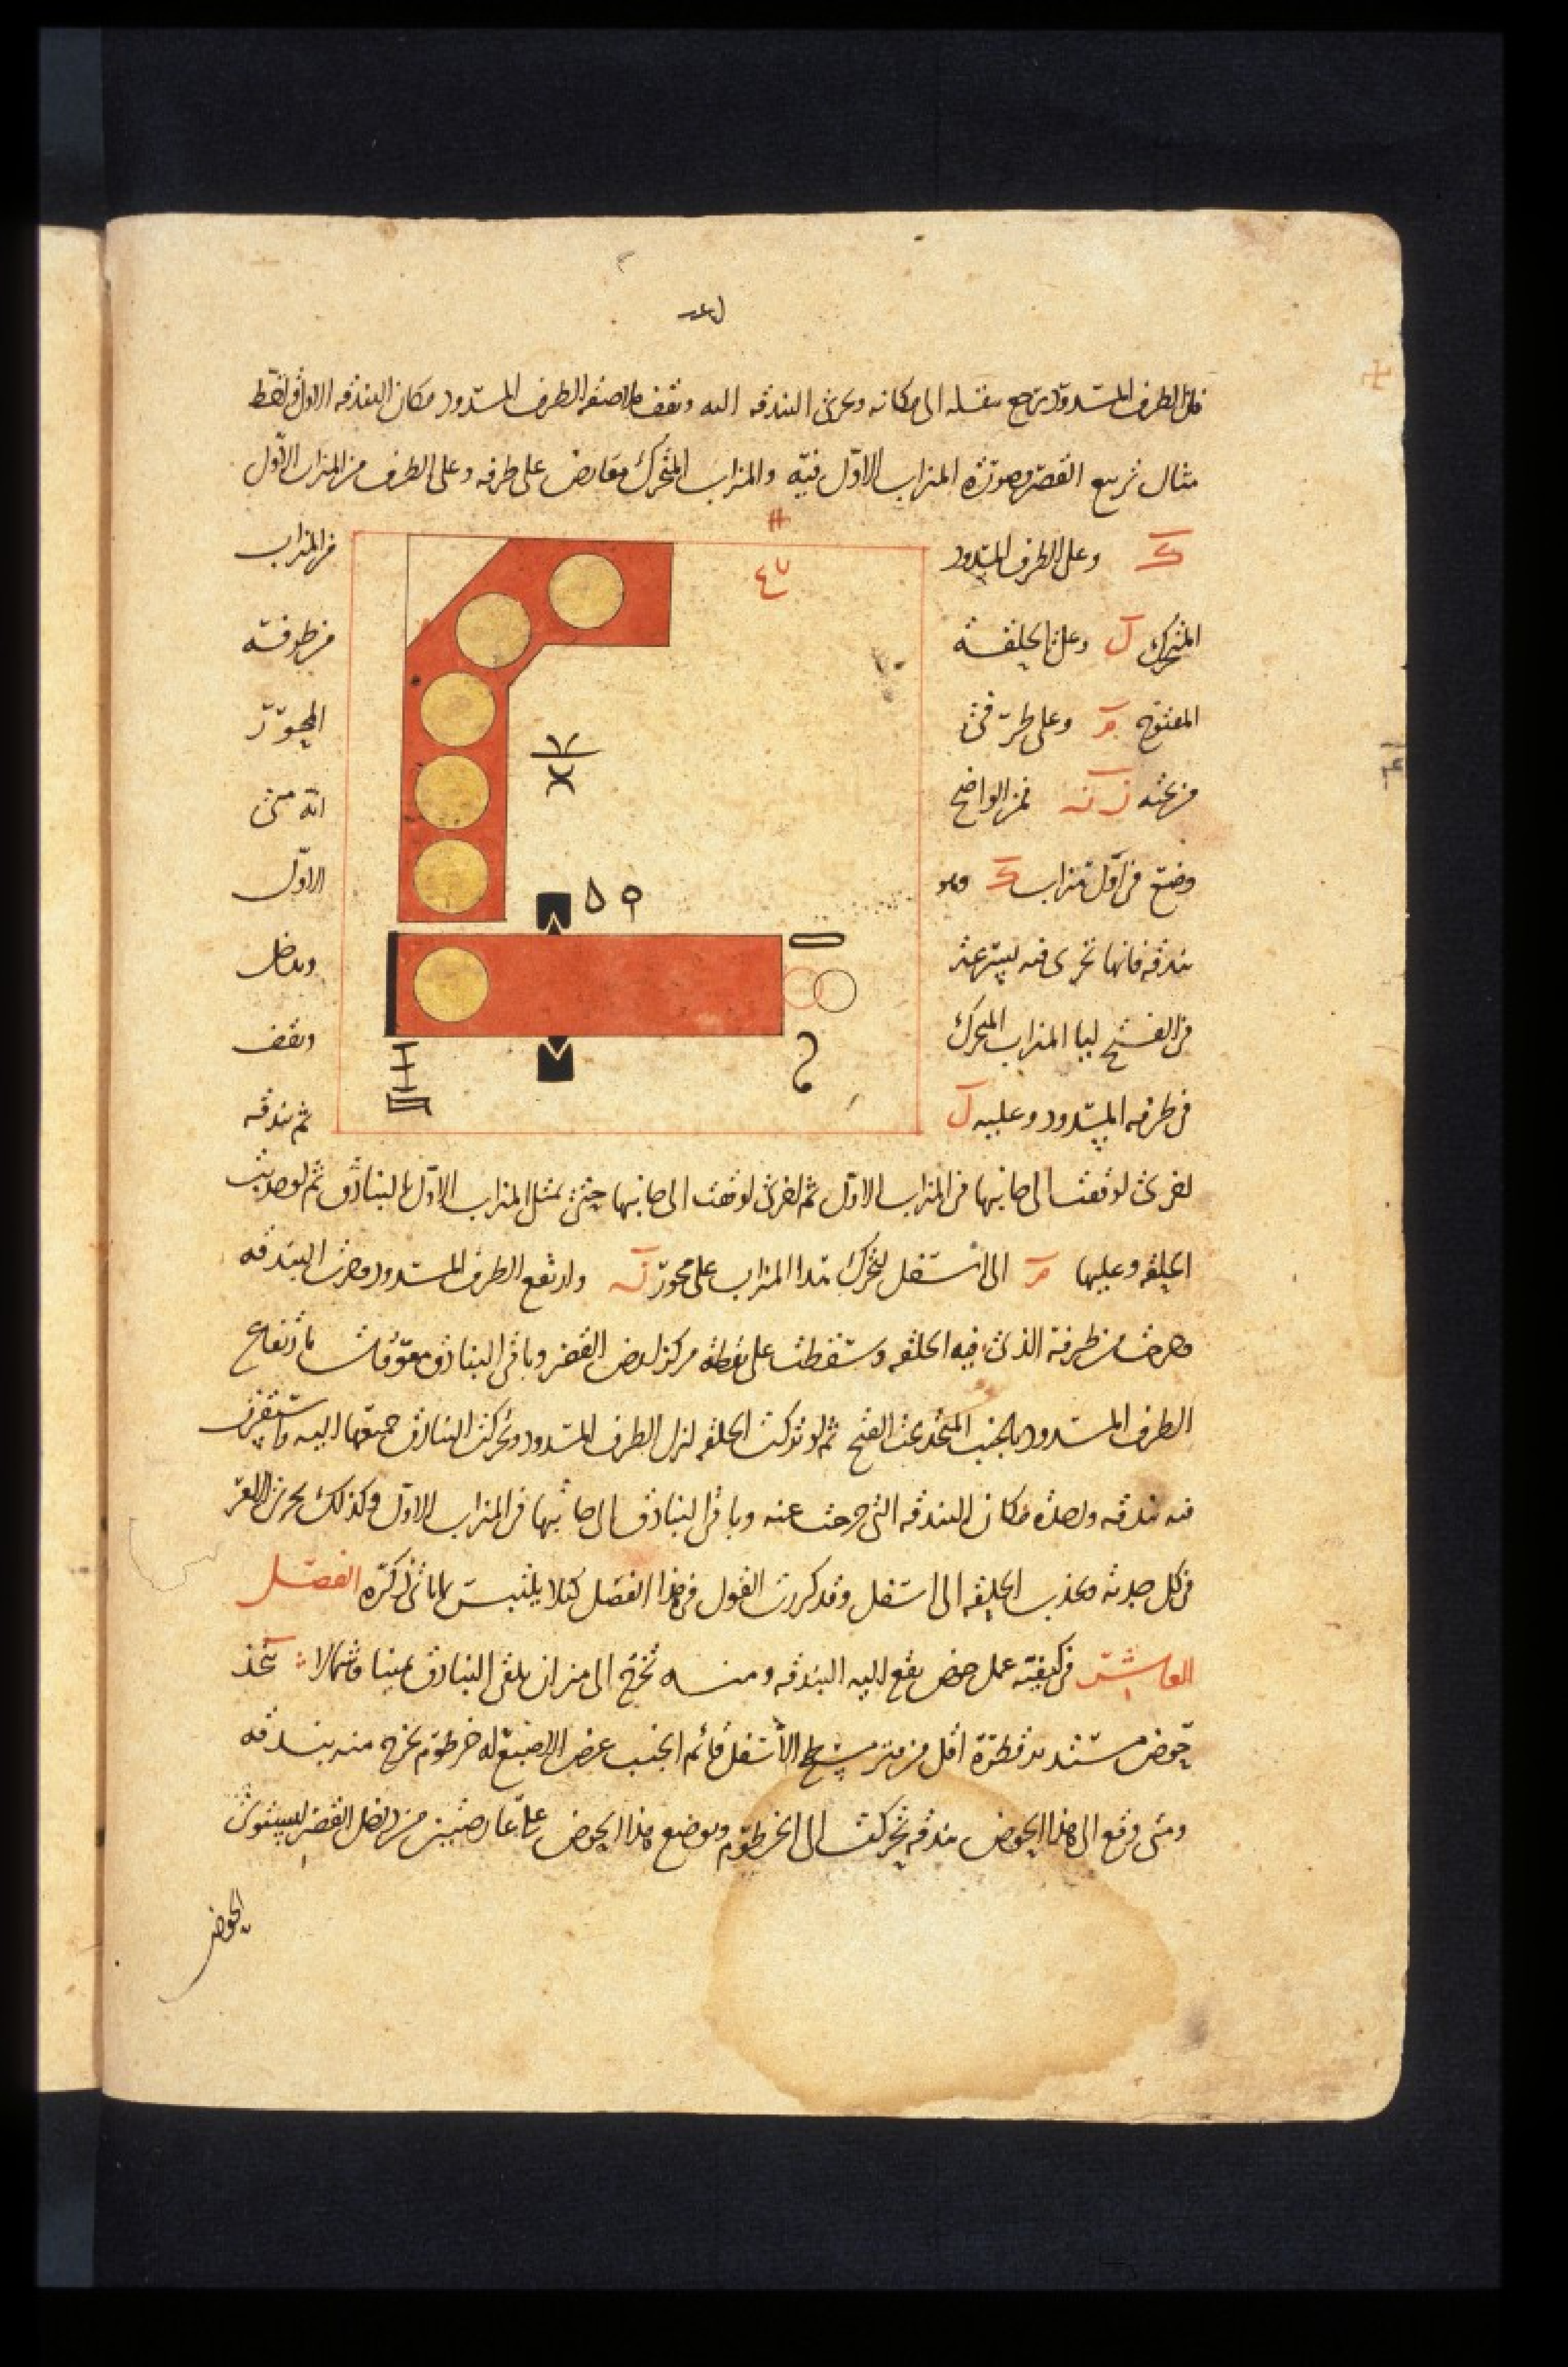 فان الطرف المسدود يرجع بثقله الى مكانه وتجري البندقه اليه وتقف ملاصقه الطرف المسدود مكان البندقه الاولى
مثال تربيع القصر وصورة الميزاب الاول فيه والميزاب المتحرك معارض على طرفه وعلى الطرف من الميزاب الاول
ك وعلى الطرف المسدود من الميزاب
المتحرك ل وعلى الحلقة من طرفه
المفتوح م وعلى طرفي المحور
من تحته ن فمن الواضح انه متى
وضع في اول ميزاب ك وهو الاول
بندقه فانها تجري فيه وتدخل
من الفتح الى الميزاب المتحرك وتقف
في طرفه المسدود وعليه ل ثم بندقه
٤٧
اخرى لوقفت الى جانبها في الميزاب الاول ثم اخرى لوقفت الى جانبها حتى يمتلئ الميزاب الاول بالبنادق ثم لو جذبت
الحلقه وعليها م الى اسفل لتحرك هذا الميزاب على محور ن وارتفع الطرف المسدود وجرت البندقه
وخرجت من طرفه الذي فيه الحلقه وسقطت على نقطة مركز ارض القصر وباقي البنادق معوقات بارتفاع
الطرف المسدود بالجنب المتخذ تحت الفتح ثم لو تركت الحلقه لنزل الطرف المسدود وتحركت البنادق جميعها اليه واستقرت
فيه بندقه واحده مكان البندقه التي خرجت عنه وباقي البنادق الى جانبها في الميزاب الاول وكذلك يجري الامر
في كل جذبه تجذب الحلقه الى اسفل وقد كررت القول في هذا الفصل كيلا يلتبس ما ياتي ذكره الفصل
العاشر في كيفية عمل حوض يقع اليه البندقه ومنه تخرج الى ميزان يلقي البنادق يمينا وشمالا يتخذ
حوض مستدير قطره اقل من شبر مسطح الاسفل قائم الجنب عرض الاصبع له خرطوم يخرج منه بندقه
ومتى وقع الى هذا الحوض بندقه تحركت الى الخرطوم ويوضع هذا الحوض على عارضتين من داخل القصر ليستوي
الحوض